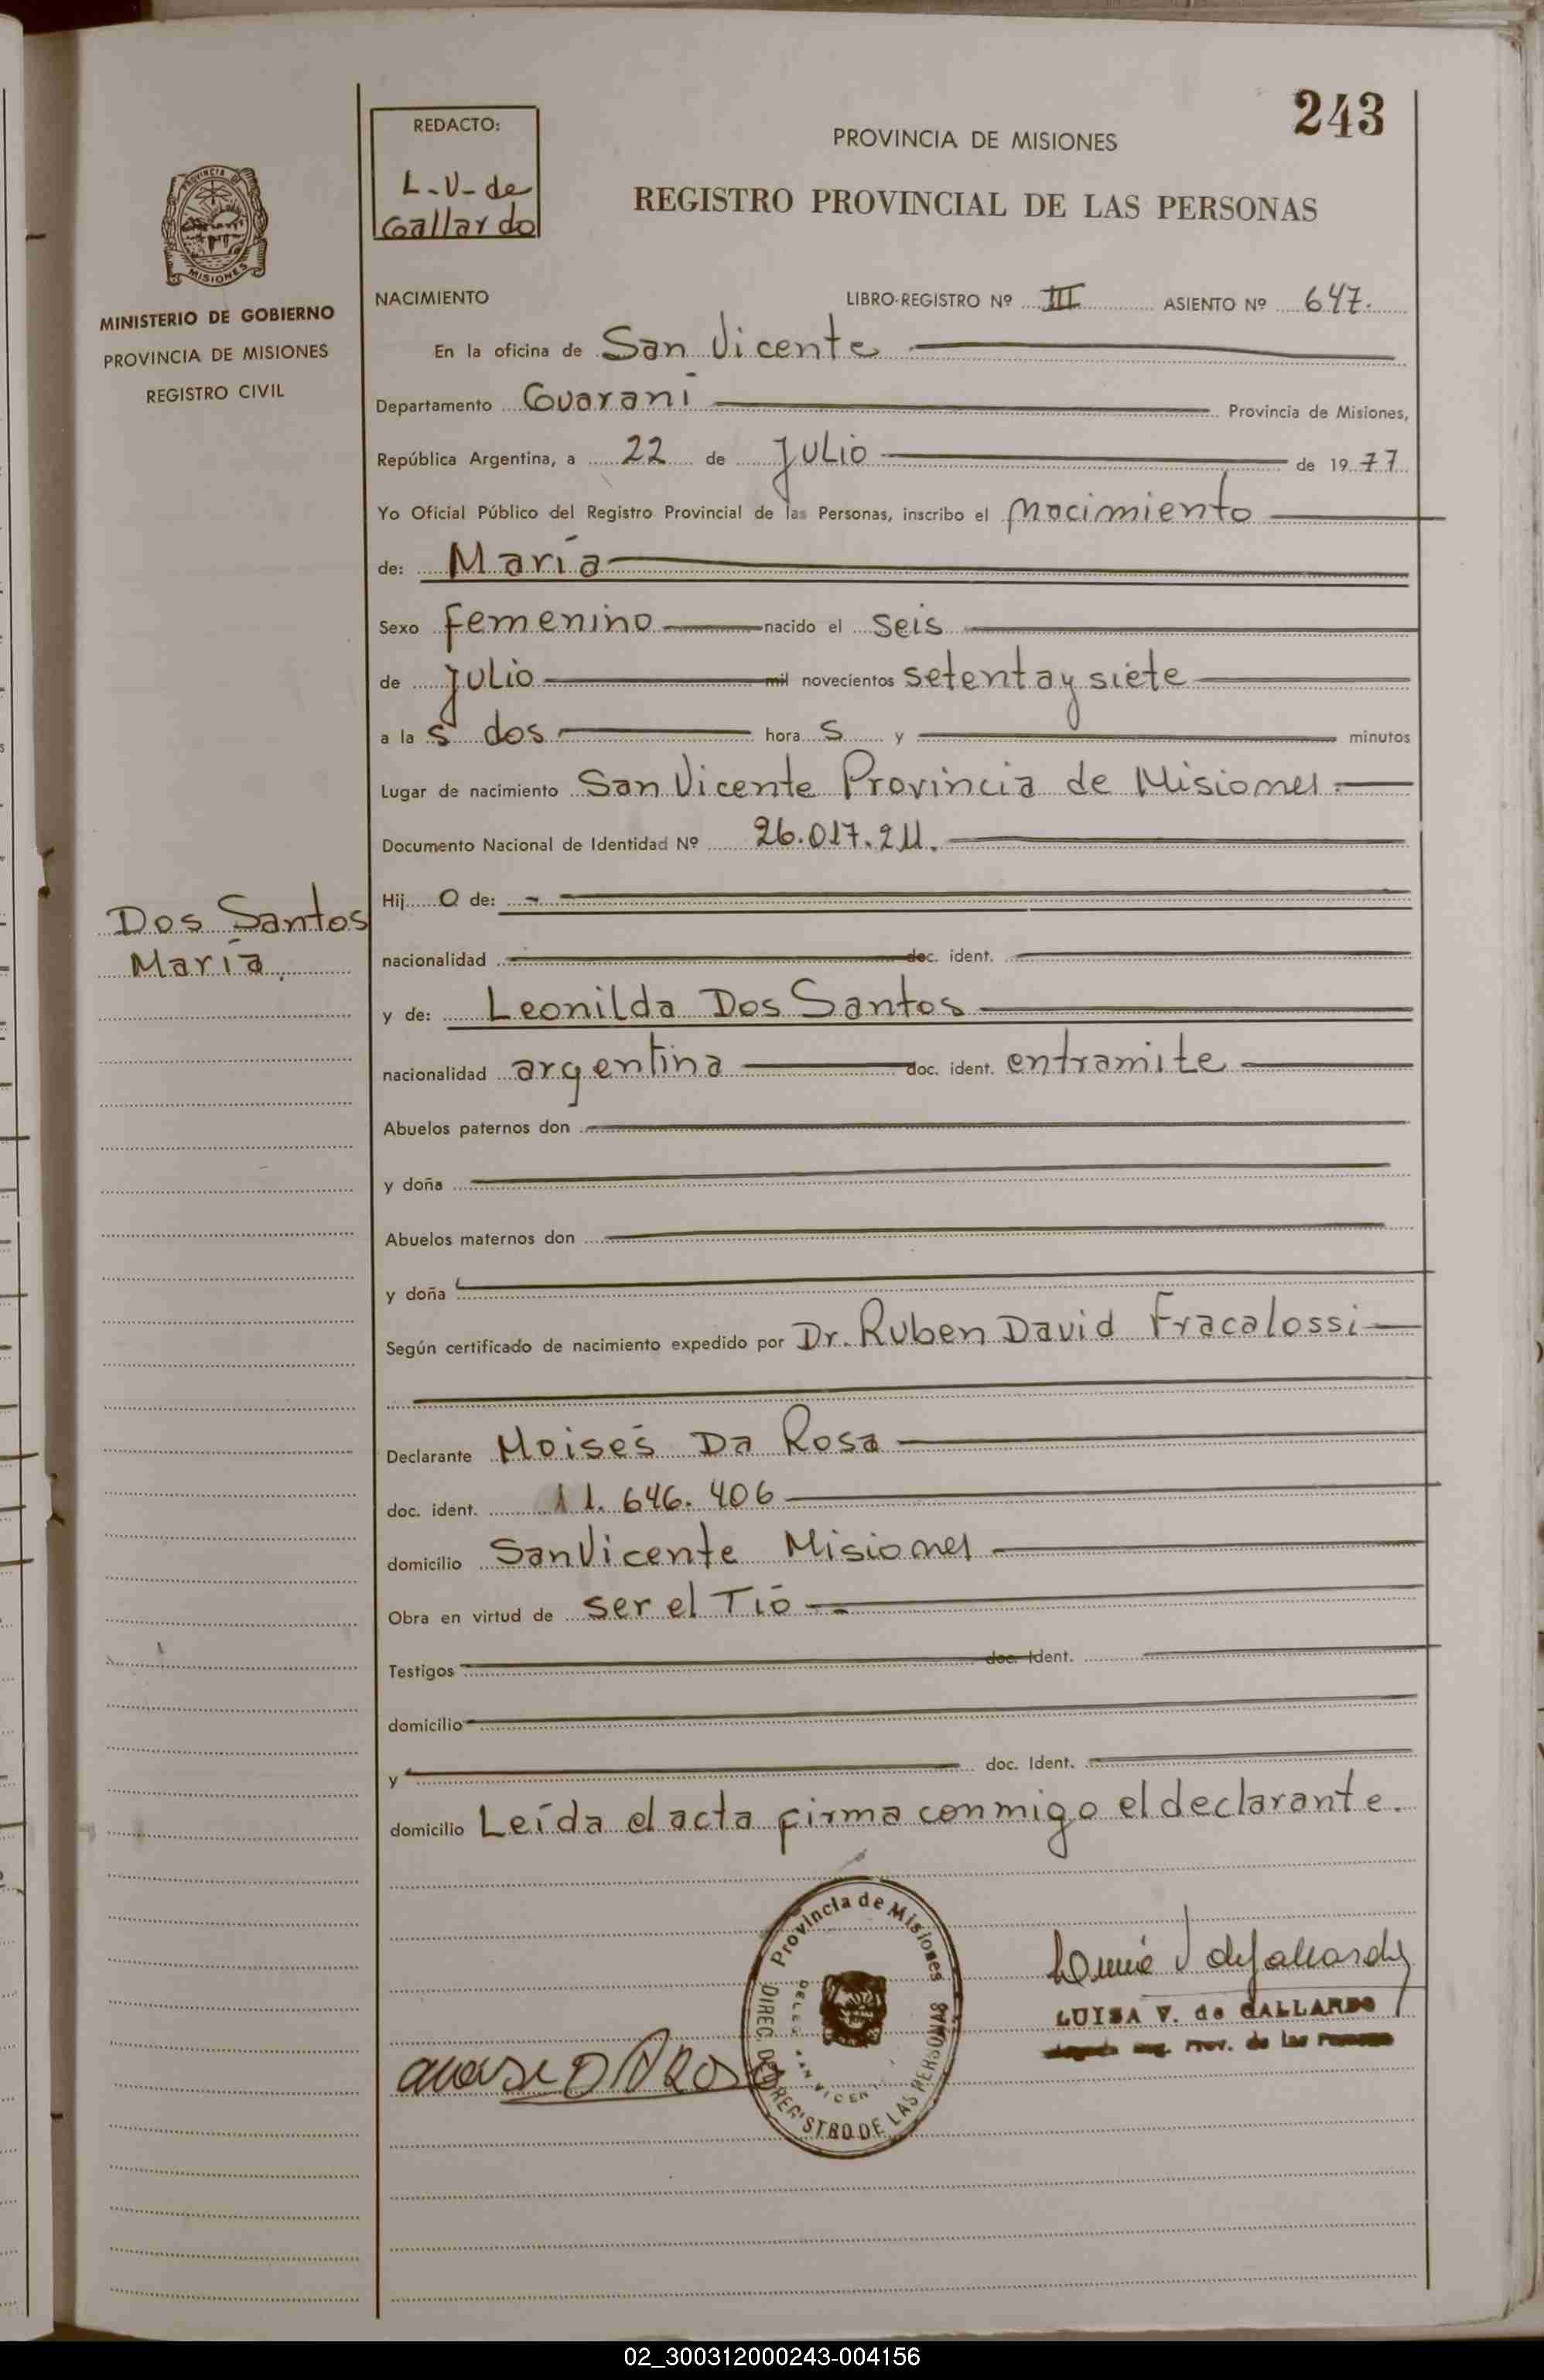 243
REDACTO:
L-V-de
Gallardo
PROVINCIA DE MISIONES
REGISTRO PROVINCIAL DE LAS PERSONAS
PROVINCIA DE
MISIONES
MINISTERIO DE GOBIERNO
PROVINCIA DE MISIONES
REGISTRO CIVIL
NACIMIENTO LIBRO-REGISTRO Nº III ASIENTO Nº 647.
En la oficina de San Vicente
Departamento Guaraní Provincia de Misiones,
República Argentina, a 22 de Julio de 1977
Yo Oficial Público del Registro Provincial de las Personas, inscribo el nacimiento
de: María
Sexo femenino nacido el seis
de Julio mil novecientos setenta y siete
a la s dos hora s y minutos
Lugar de nacimiento San Vicente Provincia de Misiones
Documento Nacional de Identidad Nº 26.017.211.
Hij o de:
Dos Santos
María.
nacionalidad doc. ident.
y de: Leonilda Dos Santos
nacionalidad argentina doc. ident. entramite
Abuelos paternos don
y doña
Abuelos maternos don
y doña
Según certificado de nacimiento expedido por Dr. Ruben David Fracalossi
Declarante Moisés Da Rosa
doc. ident. 11.646.406
domicilio San Vicente Misiones
Obra en virtud de ser el Tío
Testigos doc. Ident.
domicilio
y doc. Ident.
domicilio Leída el acta firma conmigo el declarante.
Provincia de Misiones
DIREC. DEL REGISTRO DE LAS PERSONAS
DELEG. SAN VICEN
LUISA V. de GALLARDO
Prov. de las
02_300312000243-004156